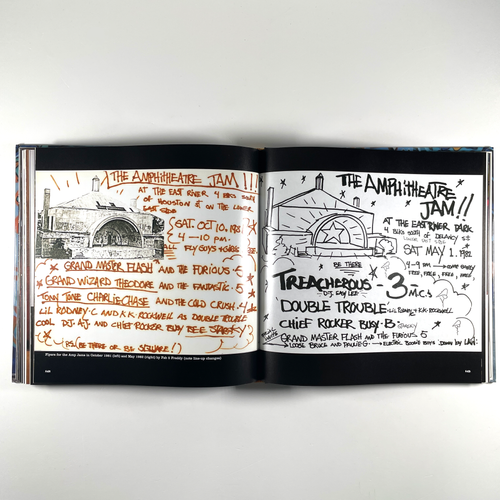 THE AMPHITHEATRE JAM!!!
AT THE EAST RIVER 4 BLKS SOUTH
OF HOUSTON ST. ON THE LOWER
EAST SIDE
SAT. OCT. 10. 1981
4 — 10 P.M.
FLY GUYS + GIRLS FREE
GRAND MASTER FLASH AND THE FURIOUS - 5
GRAND WIZARD THEODORE AND THE FANTASTIC - 5
TONY TONE CHARLIE CHASE AND THE COLD CRUSH - 4
LIL RODNEY C AND K.K. ROCKWELL AS DOUBLE TROUBLE
COOL D.J. A.J. AND CHIEF ROCKER BUSY BEE STARSKY
P.S. (BE THERE OR BE SQUARE!)
Figure for the Amp Jams in October 1981 (left) and May 1982 (right) by Fab 5 Freddy (note line-up changes)
148
THE AMPHITHEATRE
JAM!!!
AT THE EAST RIVER PARK
4 BLKS SOUTH OF DELANCY ST.
LOWER EAST SIDE
SAT MAY 1. 1982
4-9 PM → COME EARLY
FREE, FREE, FREE, FREE,
BE THERE
TREACHEROUS - 3 - M.C.s
D.J. EASY LEE
DOUBLE TROUBLE LIL RODNEY C. K.K. ROCKWELL
CHIEF ROCKER BUSY - B STARSKY
GRAND MASTER FLASH AND THE FURIOUS 5
→ LOOSE BRUCE AND PAULIE G. → ELECTRIC BOOGIE BOYS
149